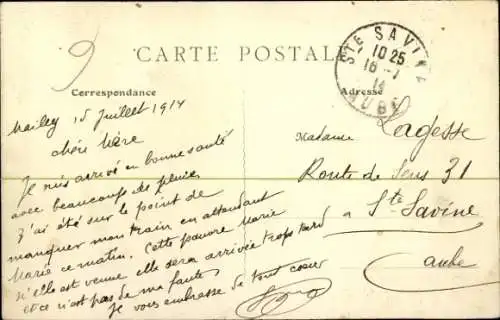 CARTE POSTALE
Correspondance
Adresse
STE SAVINE
10 25
16 -7
14
AUBE
9
Mailly, 5 Juillet 1914
chère Mère
Je suis arrivé en bonne santé
avec beaucoup de pluie
J'ai été sur le point de
manquer mon train en attendant
Marie ce matin. Cette pauvre Marie
n'elle est venue elle sera arrivée trop tard
et ce n'est pas de ma faute
Je vous embrasse de tout cœur
Madame Lagesse
Route de Sens 31
a Ste Savine
aube